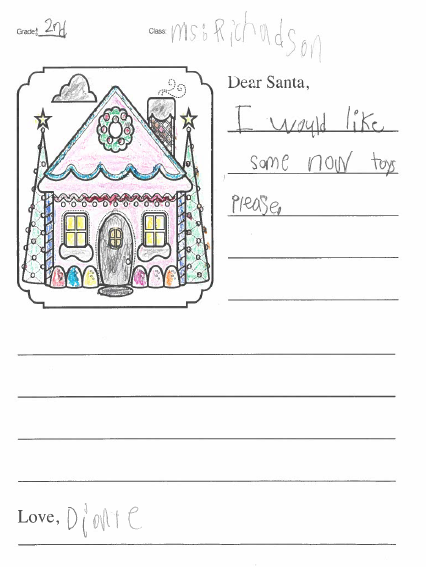 Grade: 2nd Class: Miss Richadson
Dear Santa,
I would like
some now toys
please,
Love, Dionte